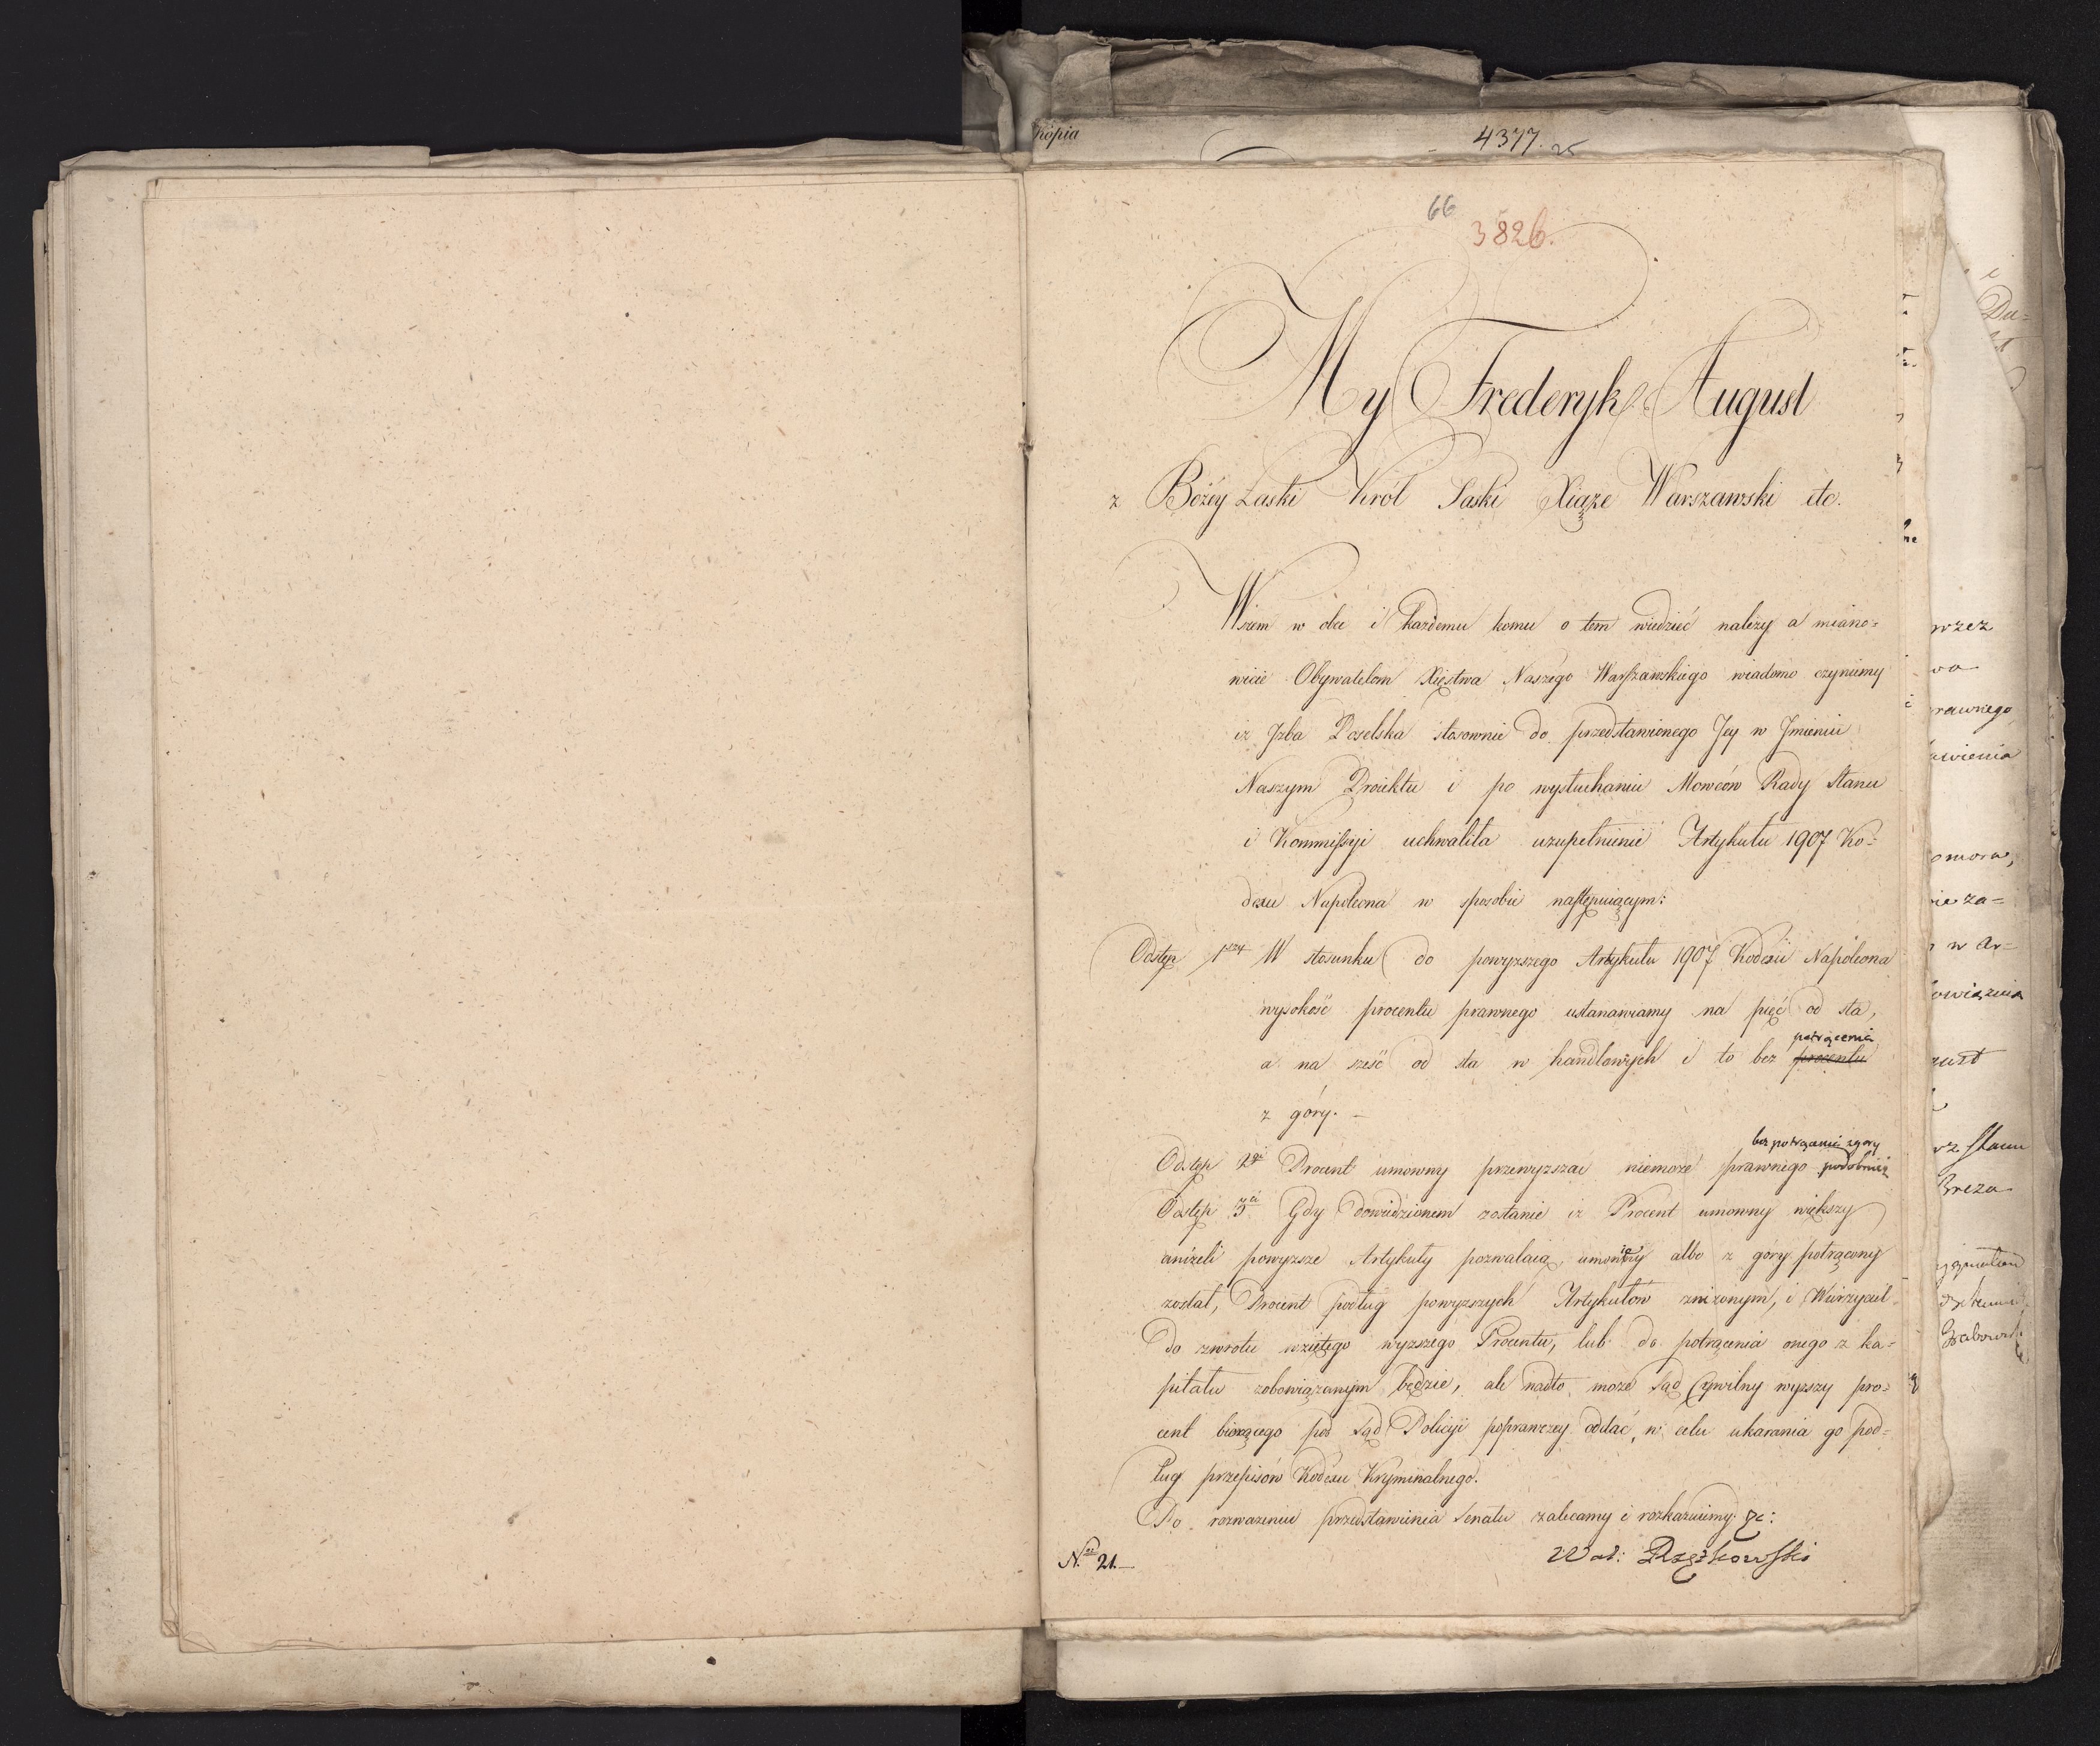 Kopia
4377.
66
3826.
My Frederyk August
z Bożéy Łaski Król Saski Xiąże Warszawski etc.
Wszem w obec i każdemu komu o tem wiedzieć należy a miano=
wicie Obywatelom Xięstwa Naszego Warszawskiego wiadomo czyniemy
iż Jzba Poselska stosownie do przedstawionego Jey w Jmieniu
Naszym Proiektu i po wysłuchaniu Mowców Rady Stanu
i Kommissyi uchwaliła uzupełnienie Artykułu 1907 Ko=
dexu Napoleona w sposobie następuiącym:
Odstęp 1szy W stosunku do powyzszego Artykułu 1907 Kodexu Napoleona
wysokość procentu prawnego ustanawiamy na pięć od sta,
potrącenia
a na sześć od sta w handlowych i to bez procentu
z góry. —
bez potrącenia z gory
Odstęp 2gi Procent umowny przewyzszać niemoże prawnego podobnież
Odstęp 3ci Gdy dowiedzionem zostanie iż Procent umowny większy
aniżeli powyzsze Artykuły pozwalaią, umowiony albo z góry potrącony
został, Procent podług powyzszych Artykułow zniżonym, i Wierzyciel
do zwrotu wziętego wyzszego Procentu, lub do potrącenia onego z ka=
pitału zobowiązanym będzie, ale nadto może Sąd Cywilny wyzszy pro=
cent biorącego pod Sąd Policyi poprawczey oddać, w celu ukarania go pod=
ług przepisów Kodexu Kryminalnego.
Do rozwazenia przedstawienia Senatu zalecamy i rozkazuiemy &c:
No 21.—
Wal: Rzętkowski
wzez
wa
rawnego
awienia
omora,
ie za=
w Ar=
owiązuia
rz Stanu
Breza
Grabowski